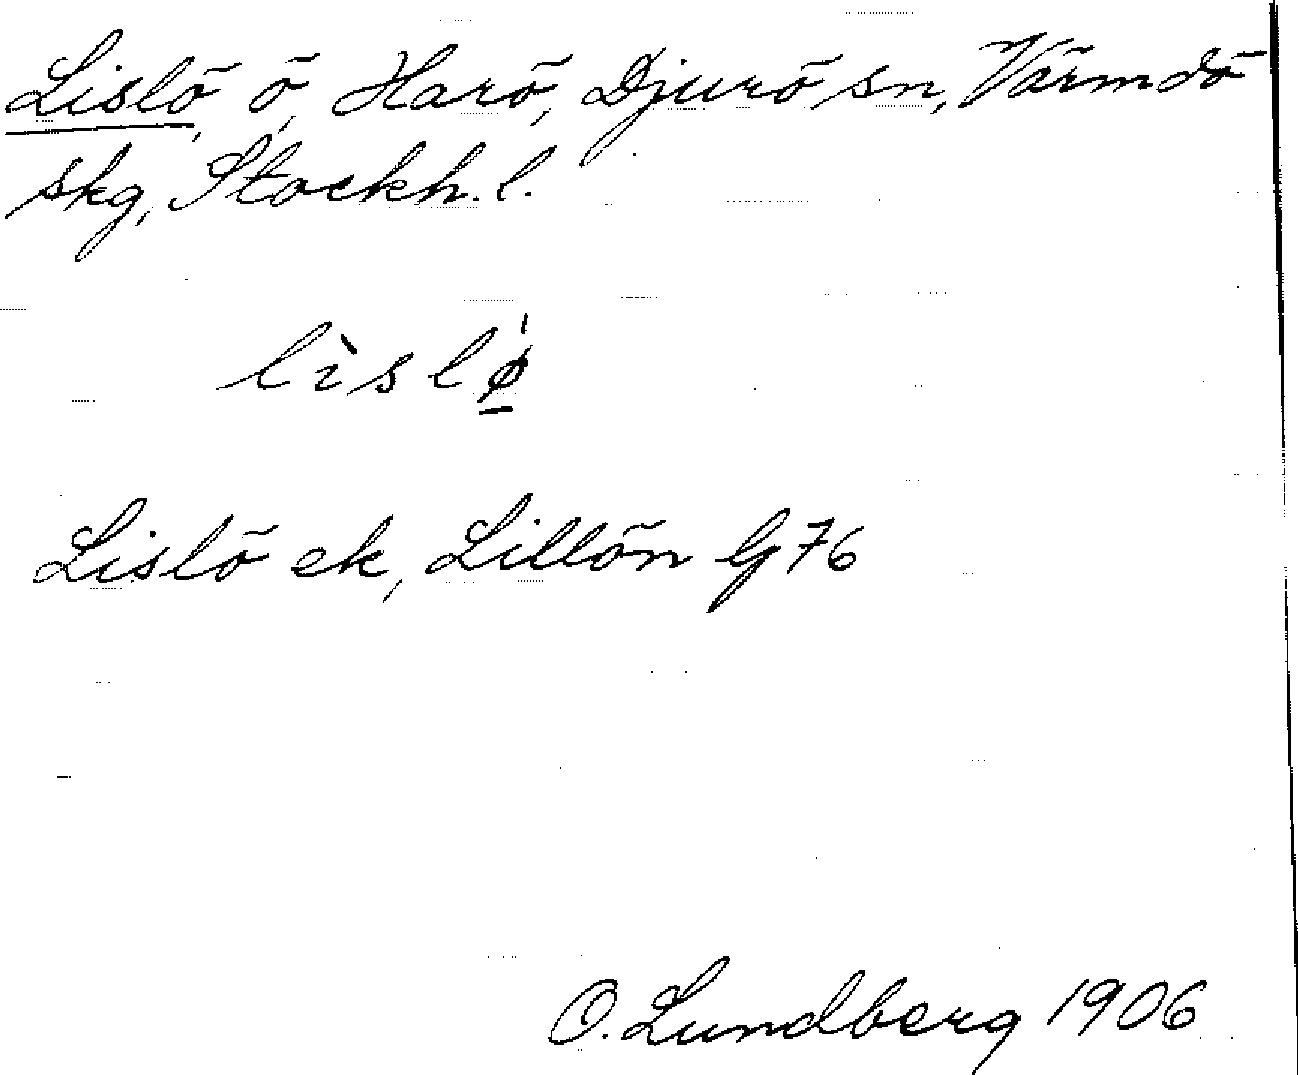 Lislö, ö, Harö, Djurö sn, Värmdö
skg, Stockh. l.
lìslǿ̱
Lislö ek, Lillön G 76
O. Lundberg 1906